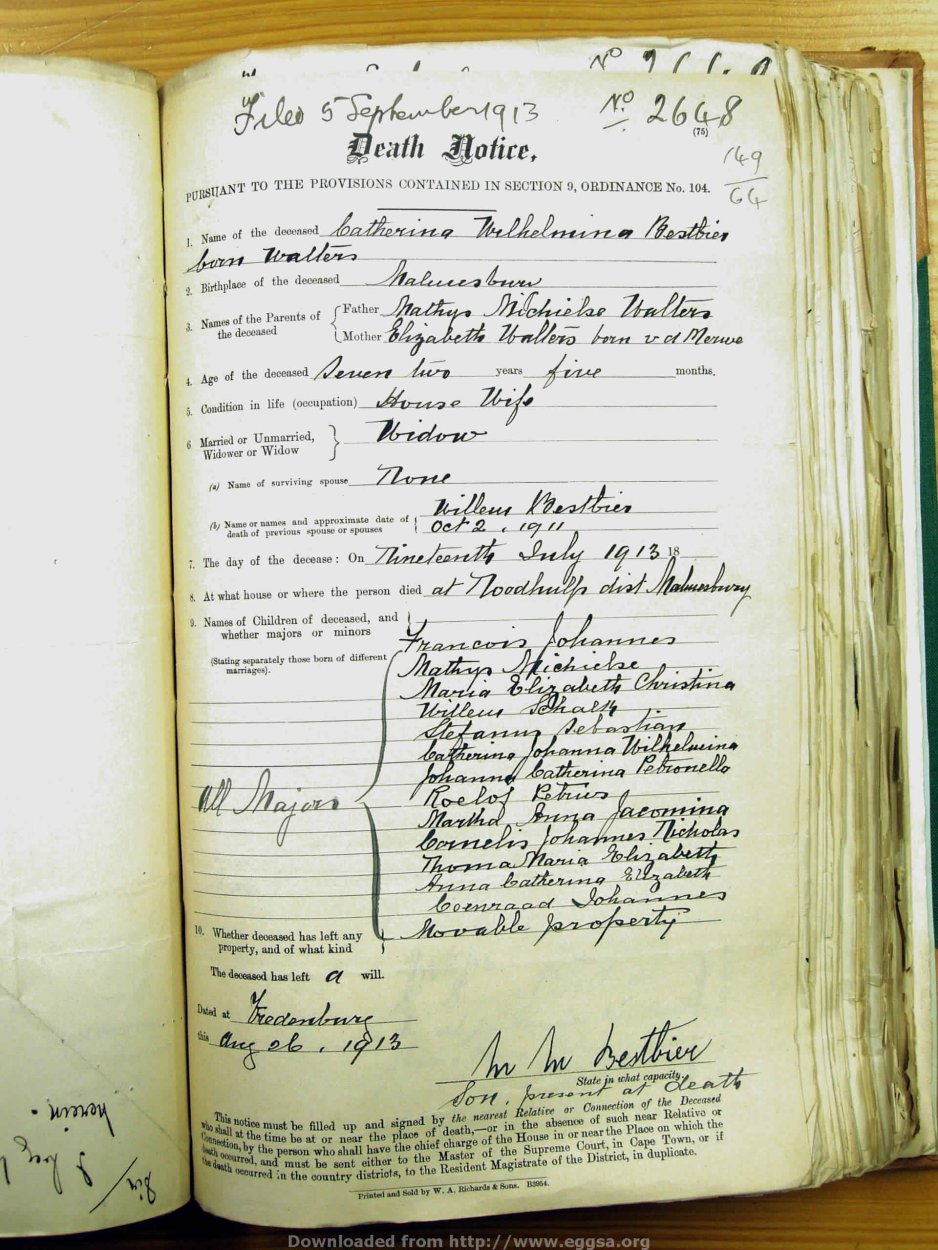 Filed 5 September 1913 No 2648
(75)
Death Notice.
149
64
PURSUANT TO THE PROVISIONS CONTAINED IN SECTION 9, ORDINANCE No. 104.
1. Name of the deceased Catherina Wilhelmina Bestbier
born Walters
2. Birthplace of the deceased Malmesbury
3. Names of the Parents of the deceased
Father Mathys Michielse Walters
Mother Elizabeth Walters born v d Merwe
4. Age of the deceased Seven two years five months.
5. Condition in life (occupation) House Wife
6 Married or Unmarried, Widower or Widow } Widow
(a) Name of surviving spouse None
(b) Name or names and approximate date of death of previous spouse or spouses
Willem Bestbier
Oct 2, 1911
7. The day of the decease: On Nineteenth July 1913 18
8. At what house or where the person died at Noodhulp dist Malmesbury
9. Names of Children of deceased, and whether majors or minors
(Stating separately those born of different marriages).
Francois Johannes
Mathys Michielse
Maria Elizabeth Christina
Willem Schalk
Stefanus Sebastian
Catherina Johanna Wilhelmina
Johanna Catherina Petronella
All Majors
Roelof Petrus
Martha Anna Jacomina
Cornelis Johannes Nicholas
Thoma Maria Elizabeth
Anna Catherina Elizabeth
Coenraad Johannes
10. Whether deceased has left any property, and of what kind } Movable property
The deceased has left a will.
Dated at Vredenburg
this Aug 26, 1913
M M Bestbier
State in what capacity.
Son, present at death
This notice must be filled up and signed by the nearest Relative or Connection of the Deceased
who shall at the time be at or near the place of death,—or in the absence of such near Relative or
Connection, by the person who shall have the chief charge of the House in or near the Place on which the
death occurred, and must be sent either to the Master of the Supreme Court, in Cape Town, or if
the death occurred in the country districts, to the Resident Magistrate of the District, in duplicate.
Printed and Sold by W. A. Richards & Sons. B3954.
herein.
Downloaded from http://www.eggsa.org